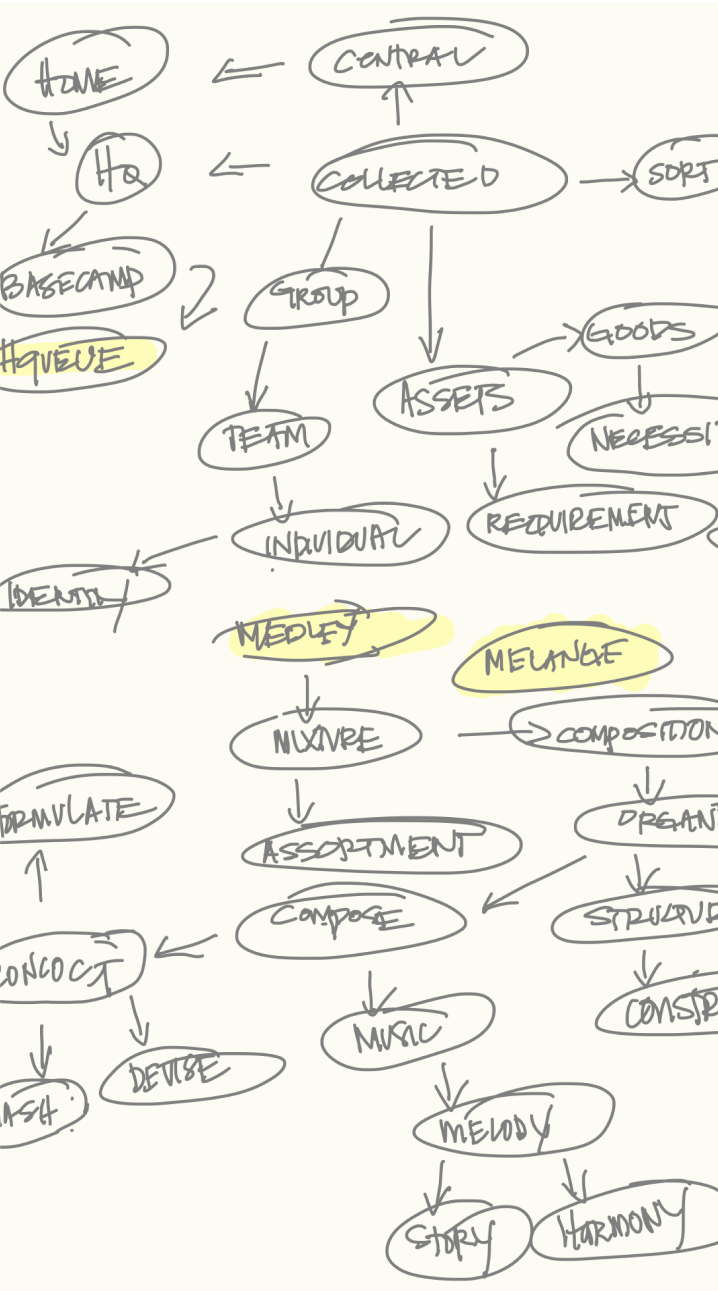 HOME
CENTRAL
HQ
COLLECTED
SORT
BASECAMP
GROUP
HQUEUE
GOODS
ASSETS
TEAM
NECESSI
REQUIREMENT
INDIVIDUAL
IDENTITY
MEDLEY
MELANGE
MIXTURE
COMPOSITION
FORMULATE
ORGANI
ASSORTMENT
COMPOSE
STRUCTURE
CONCOCT
CONSTR
MUSIC
DEVISE
ASH
MELODY
STORY
HARMONY